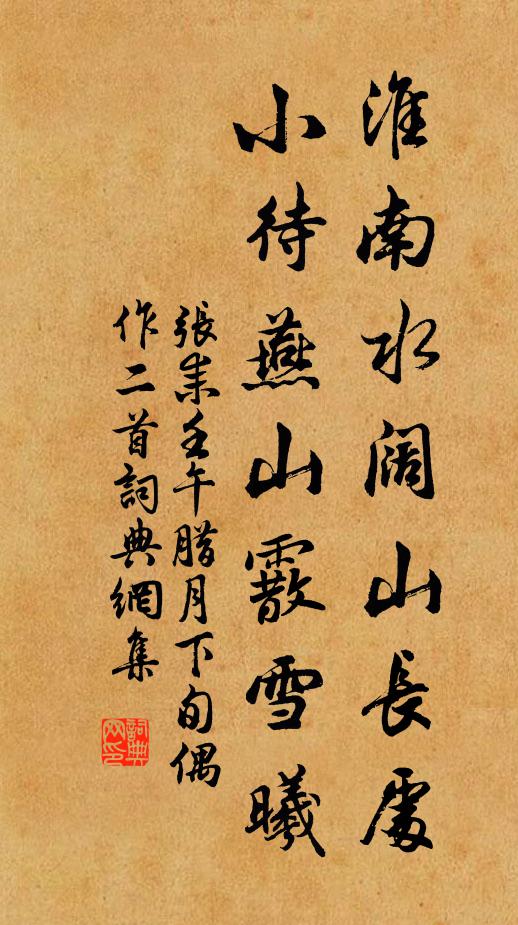 淮南水闊山長處
小待燕山霰雪曦
張耒壬午腊月下旬偶
作二首詞典網集
詞典
网印